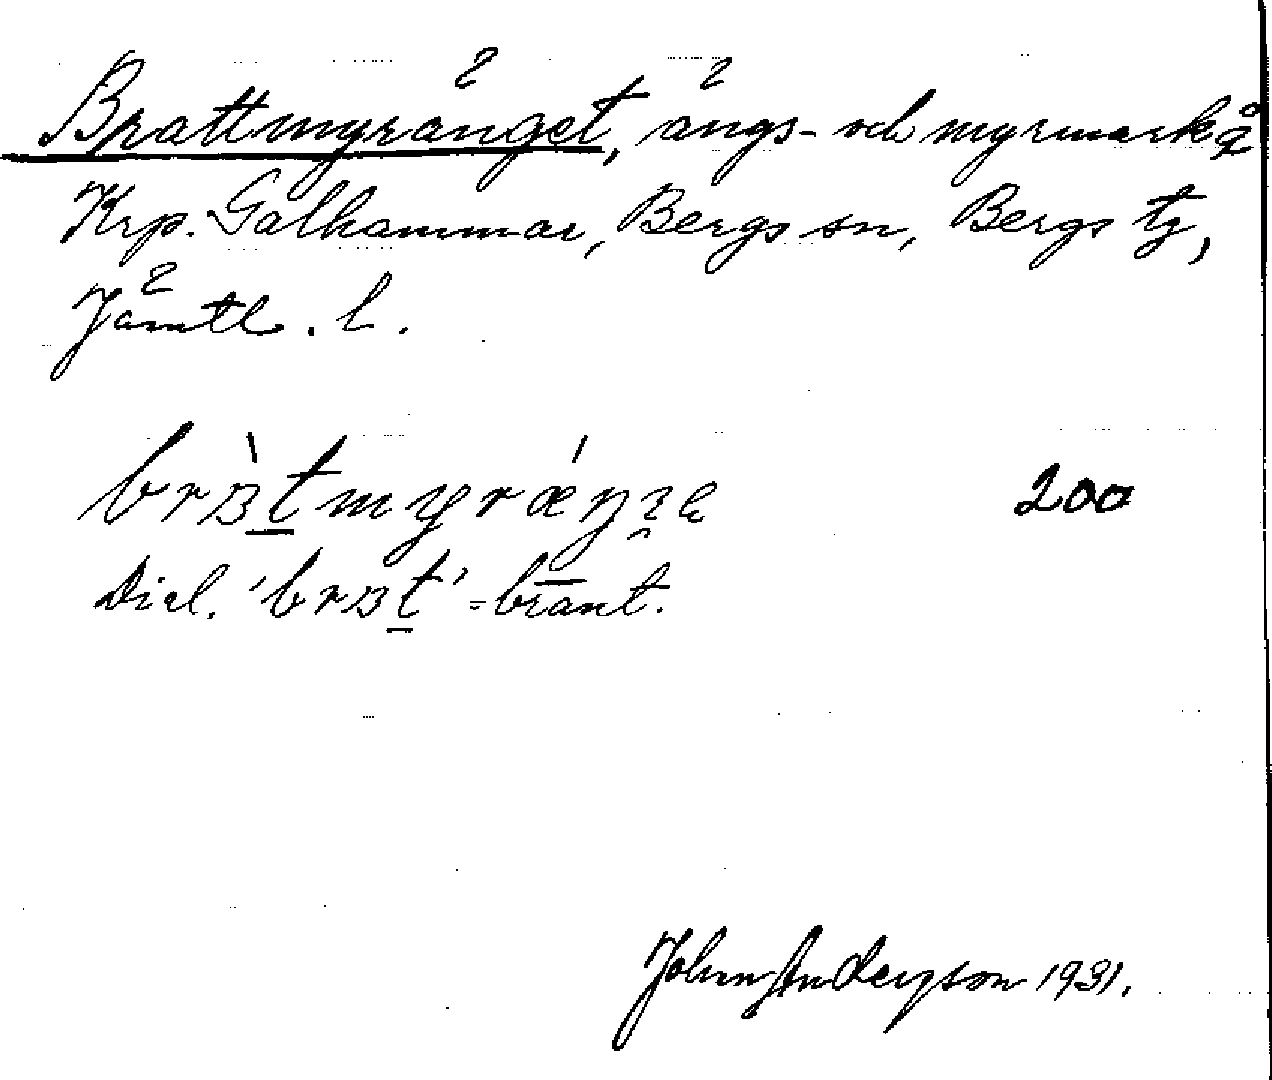 Brattmyränget, ängs- och myrmark å
Krp. Galhammar, Bergs sn, Bergs tg,
Jämtl. l.
200
Dial. = brant.
John Anderson 1931.